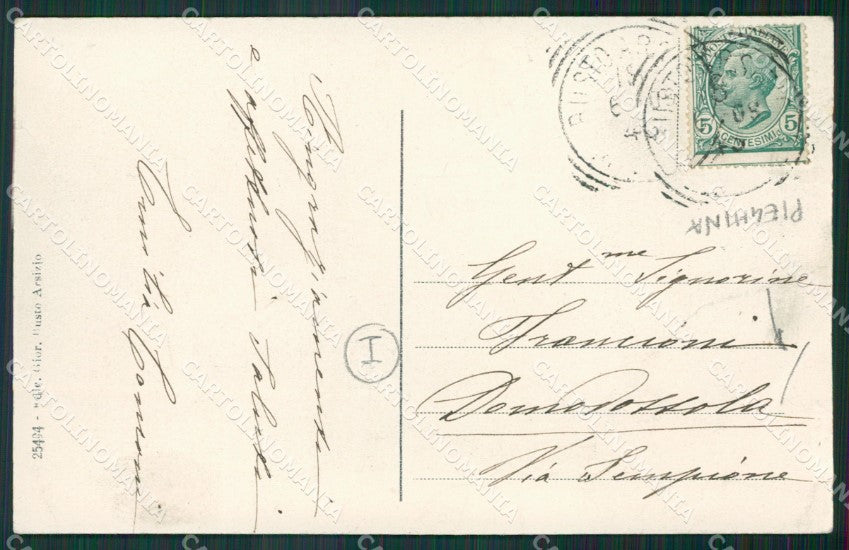 Ringraziamenti
e affettuosi saluti
Emilia
25494 - Edic. Gior. Busto Arsizio
I
BUSTO AR
5 CENTESIMI 5
PIEGHINA
Gent me Signorine
Francioni
Domodossola
Via Sempione
CARTOLINOMANIA